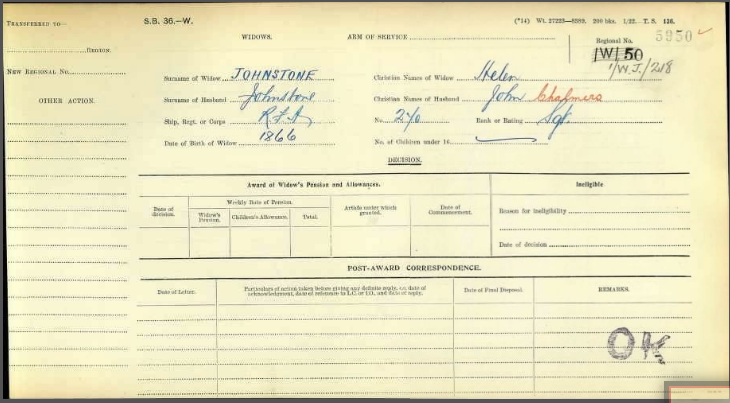 TRANSFERRED TO—
S.B. 36.—W.
(*14) Wt. 27223—8289. 200 bks. 1/22.—T. S. 136.
REGION.
WIDOWS.
ARM OF SERVICE
Regional No.
5950
1W/50
1/W.J./218
NEW REGIONAL No.
Surname of Widow JOHNSTONE
Christian Names of Widow Helen
OTHER ACTION.
Surname of Husband Johnstone
Christian Names of Husband John Chalmers
Ship, Regt. or Corps R.F.A.
No. 240 Rank or Rating Sgt.
Date of Birth of Widow 1866
No. of Children under 16
DECISION.
Award of Widow's Pension and Allowances.
Ineligible
Date of decision.
Weekly Rate of Pension.
Widow's Pension.
Children's Allowance.
Total.
Article under which granted.
Date of Commencement.
Reason for ineligibility
Date of decision
POST-AWARD CORRESPONDENCE.
Date of Letter.
Particulars of action taken before giving any definite reply, i.e. date of acknowledgment, date of reference to L.C. or I.D., and date of reply.
Date of Final Disposal.
REMARKS.